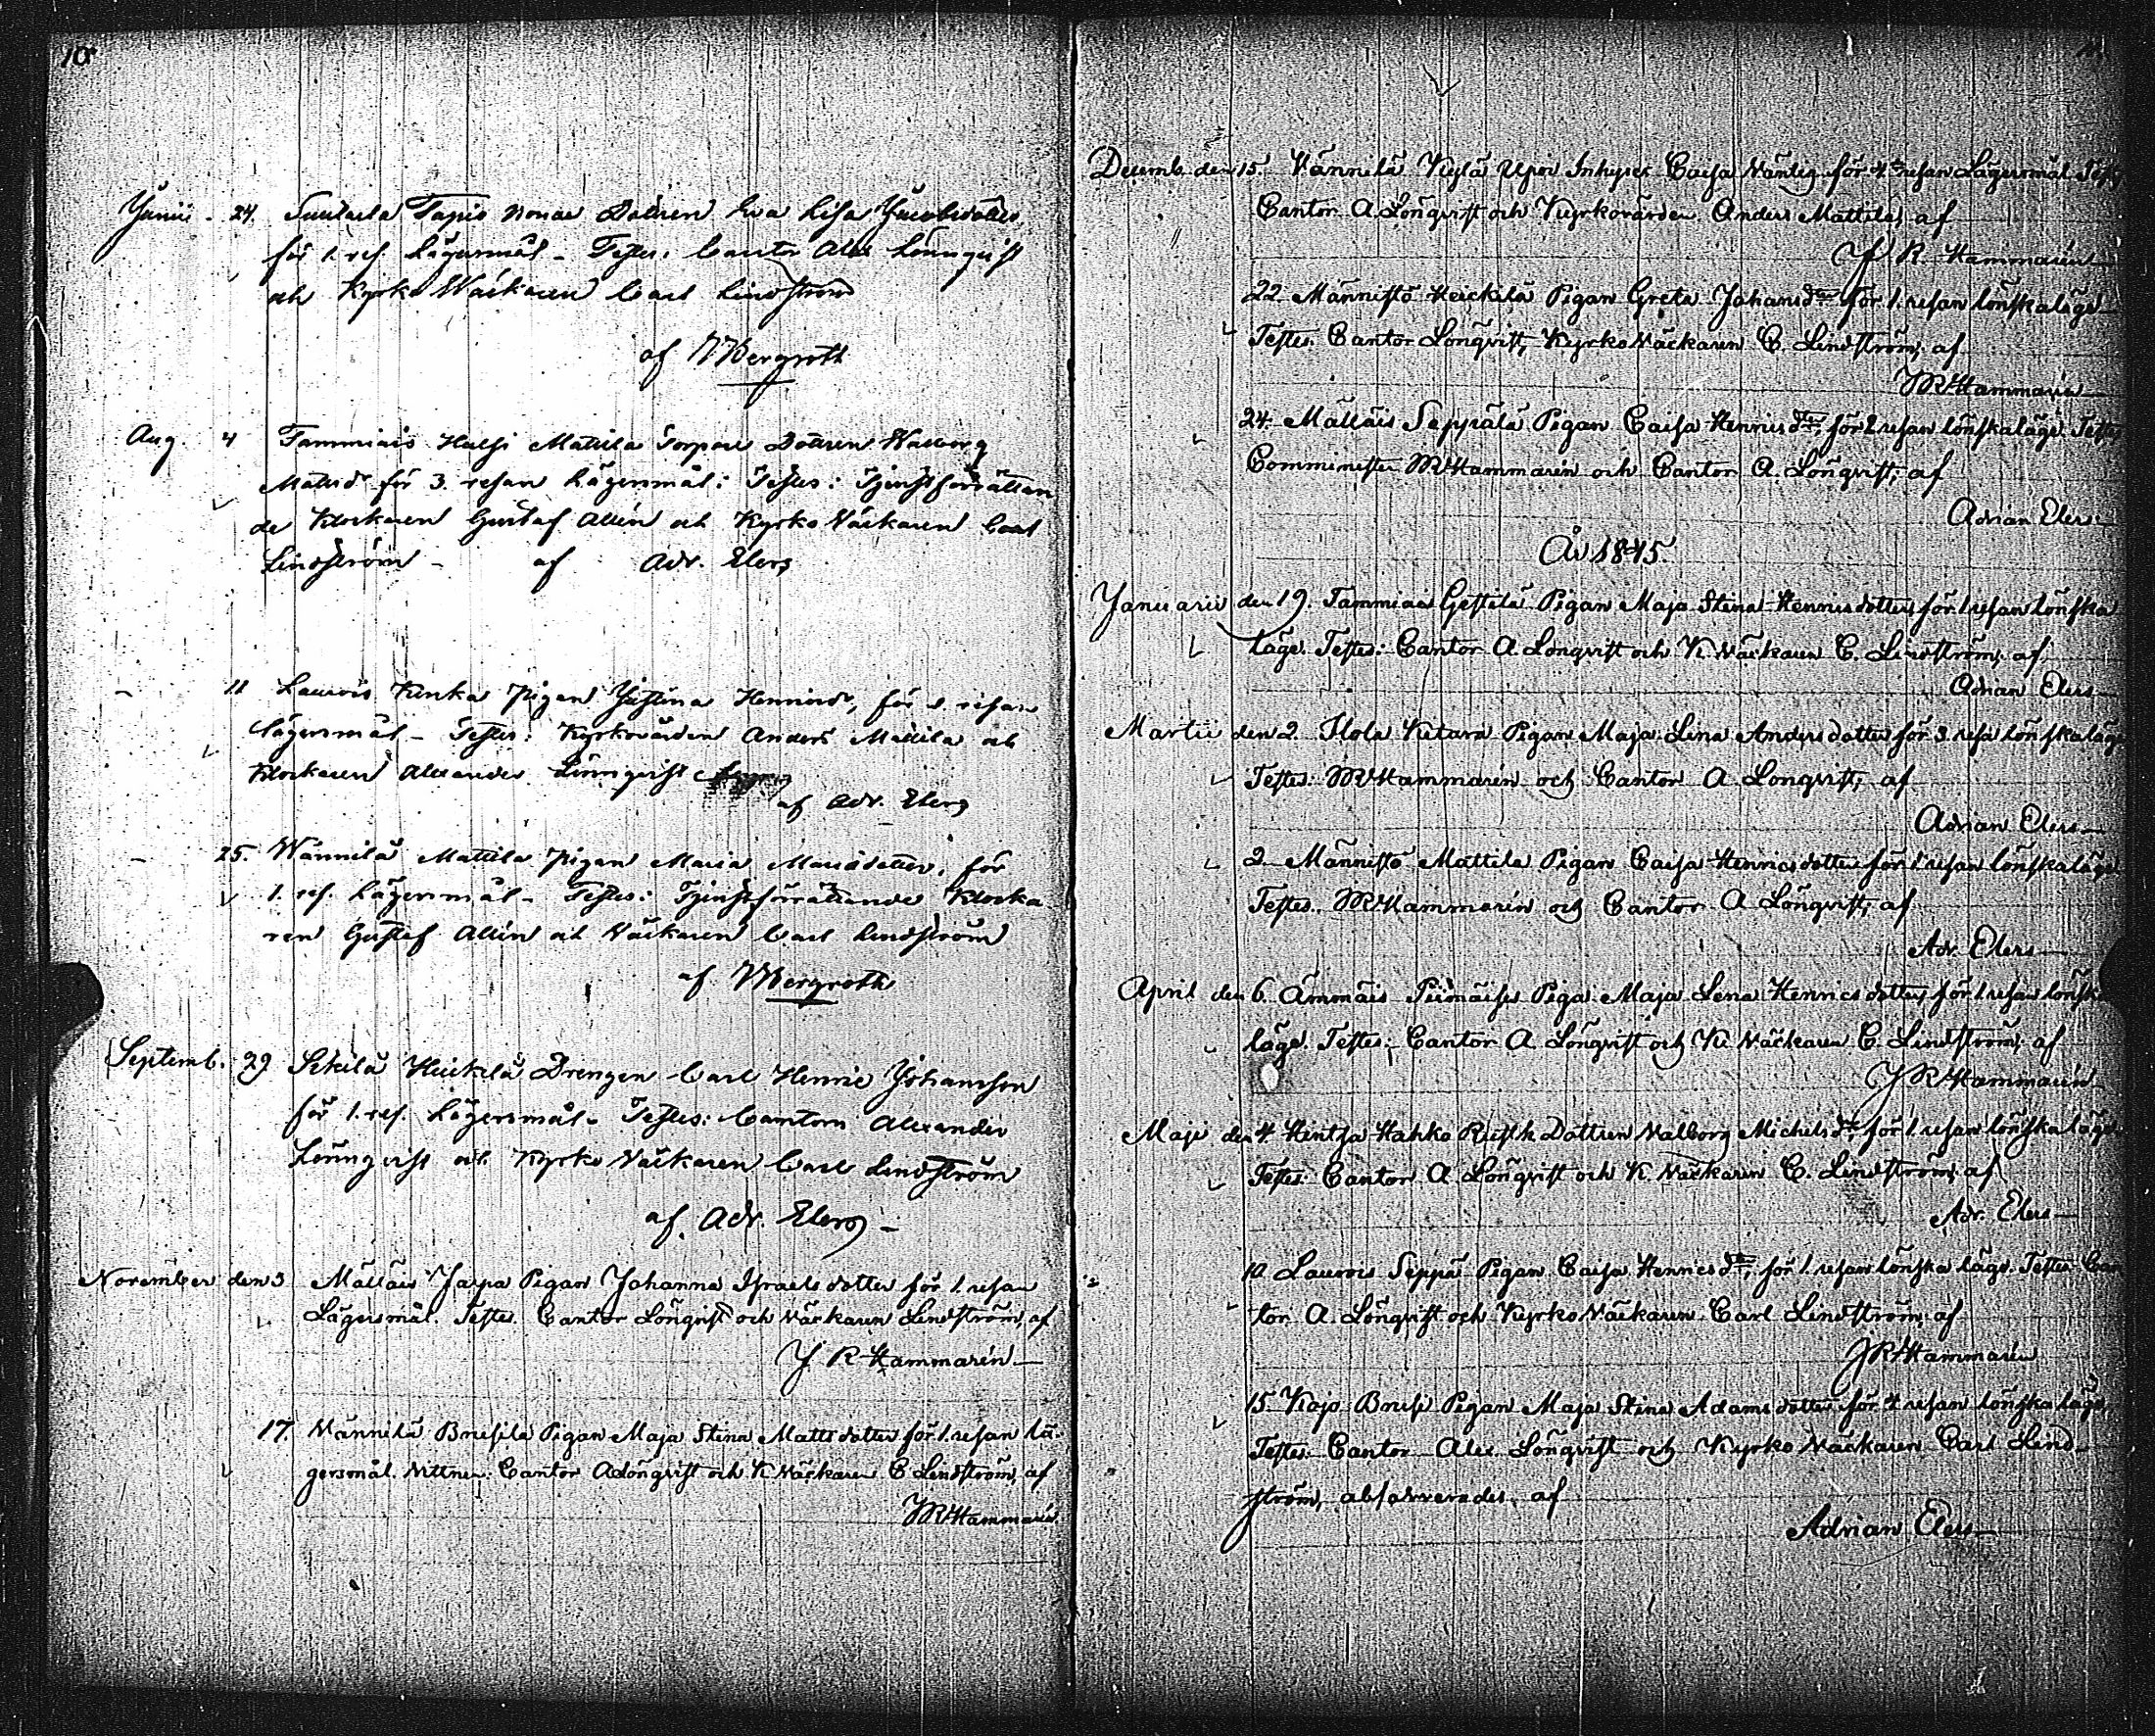 10
Junii - 24. Tapio Bonde Dottren Eva Lisa Jacobsdotter,
för 1. res. Lägersmål - Testes: Cantor Alex Lönnqvist
och Kyrko Wäckaren Carl Lindström
af Bergroth
Aug. 4 Tammiais Mattila Torpare Dottren Walborg
Matsdr för 3. resan Lägersmål: Testes: Tjenstförrättan
de Klockaren Gustaf Allén och Kyrko Väckaren Carl
Lindström - af Adr. Elers
- 11 Laurois Pigan Justina Henricsdr, för resan
Lägersmål - Testes: Kyrkovärden Anders Mattila och
Klockaren Alexander Lönnqvist
af Adr. Elers
- 25. Wännilä Mattila Pigan Maria Mattsdotter, för
1. res. Lägersmål - Testes: Tjenstförrättande Klocka
ren Gustaf Allén och Väckaren Carl Lindström
af Bergroth
Septemb. 29 Heickilä Drengen Carl Henric Johansson
för 1. res. Lägersmål - Testes: Cantorn Alexander
Lönnqvist och Kyrko Väckaren Carl Lindström
af Adr. Elers -
November den 3 Mälläis Jaspa Pigan Johanna Israels dotter för 1. resan
Lägersmål. Testes. Cantor Lönqvist och Väckaren Lindström, af
J R Hammarén
17. Vännilä Pigan Maja Stina Matts dotter för 1. resan Lä-
gersmål. Vittnen: Cantor A Lönqvist och K Väckaren C Lindström, af
JR Hammarén
Decemb. den 15. Vännilä Inhyses Caisa för 4de resan Lägersmål.
Cantor A. Lönqvist och Kyrkovärden Anders Mattila, af
J R Hammarén
22. Männistö Heickilä Pigan Greta Johansdtr för 1. resan lönskaläge
Testes. Cantor Lönqvist, Kyrko Väckaren C. Lindström, af
JR Hammarén
24. Mälläis Seppälä Pigan Caisa Henricsdtr, för 2 resan lönskaläge. Testes
Comminister JR Hammarén och Cantor A. Lönqvist, af
Adrian Elers
År 1845.
Januarii den 19. Tammiais Pigan Maja Stina Henricsdotter, för 1 resan lönska
läge. Testes: Cantor A. Lönqvist och K Väckaren C. Lindström, af
Adrian Elers
Martii den 2. Ilola Ketara Pigan Maja Lina Andersdotter för 3. resa lönskaläge
Testes: JR Hammarén och Cantor A Lönqvist, af
Adrian Elers
2 Männistö Mattila Pigan Caisa Henricsdotter för 1 resan lönskaläge
Testes. JR Hammarén och Cantor A Lönqvist, af
Adr. Elers
April den 6. Ämmäis Piga Maja Lena Henrics dotter, för 1 resan lönska
läge. Testes: Cantor A Lönqvist och K Väckaren C. Lindström, af
J R Hammarén
Maji den 4. Hintsa Hahko Dottren Valborg Michelsdtr, för 1 resan lönska läge
Testes: Cantor A Lönqvist och K. Väckaren C. Lindström, af
Adr. Elers
10 Laurois Seppä Pigan Caisa Henricsdtr, för 1. resan lönska läge. Testes Can
tor A. Lönqvist och Kyrko Väckaren Carl Lindström, af
JR Hammarén
15. Kiojo Pigan Maja Stina Adams dotter för 4 resan lönska läge,
Testes: Cantor Alex. Lönqvist och Kyrko Väckaren Carl Lind-
ström, absolverades, af
Adrian Elers